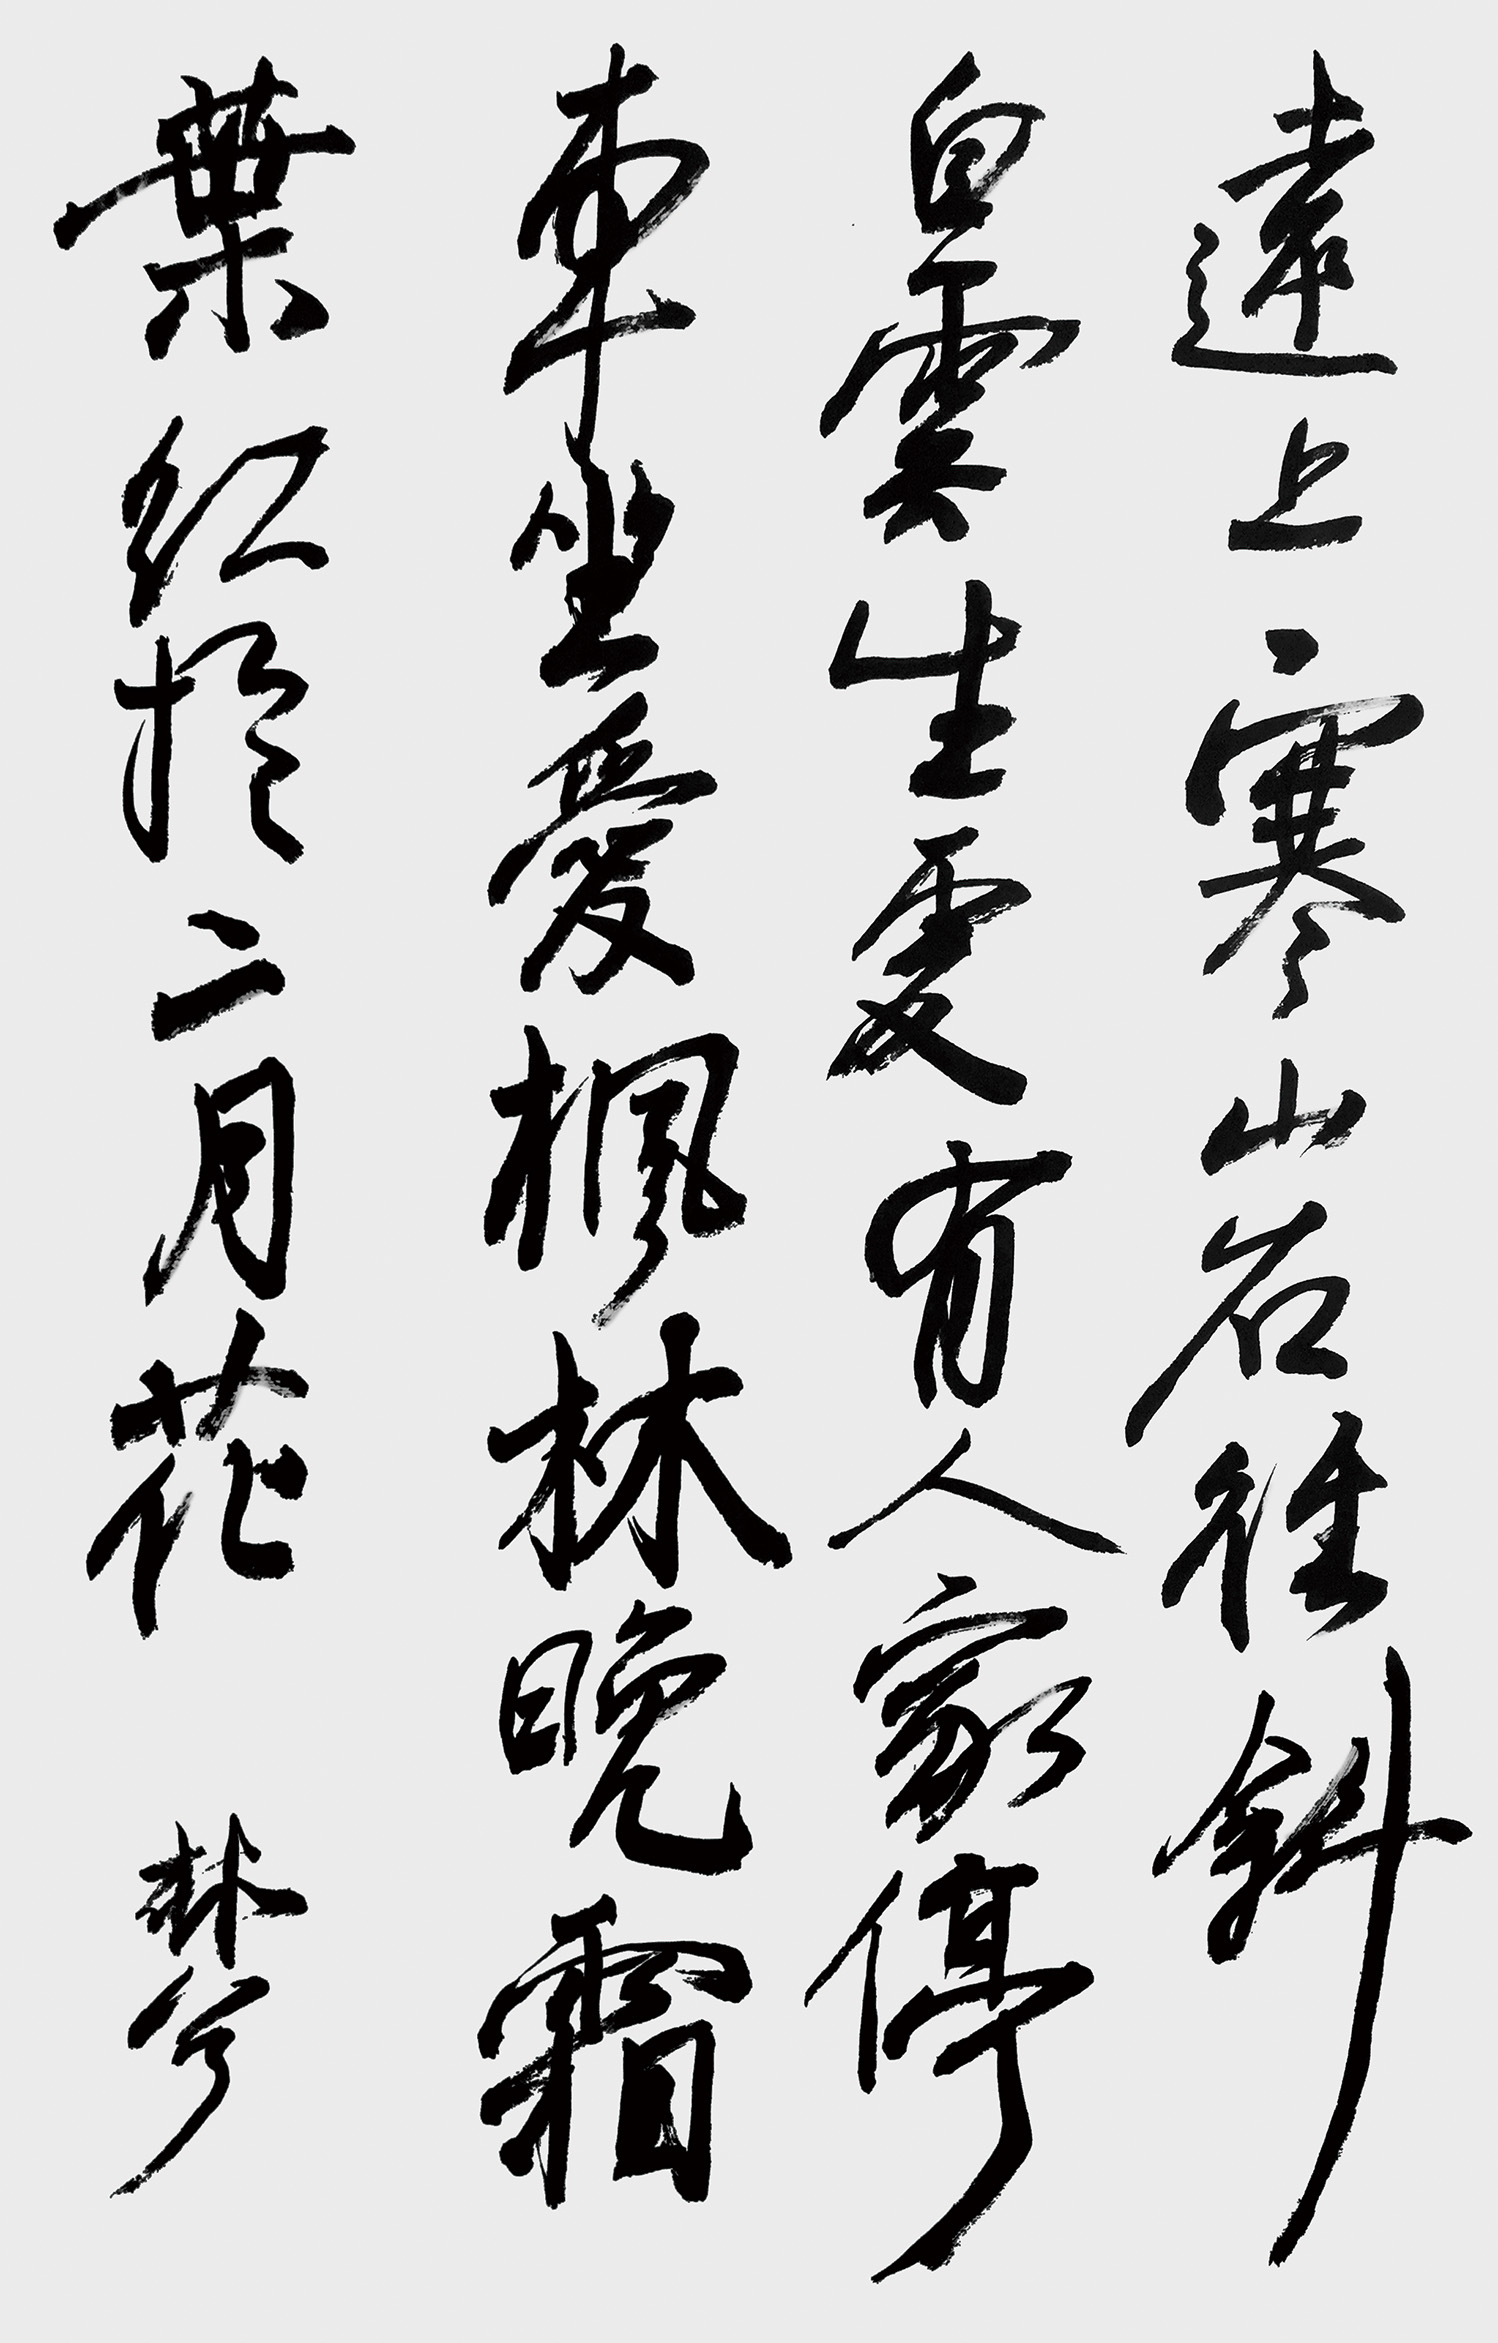 遠上寒山石徑斜
白雲生處有人家停
車坐愛楓林晚霜
葉紅於二月花